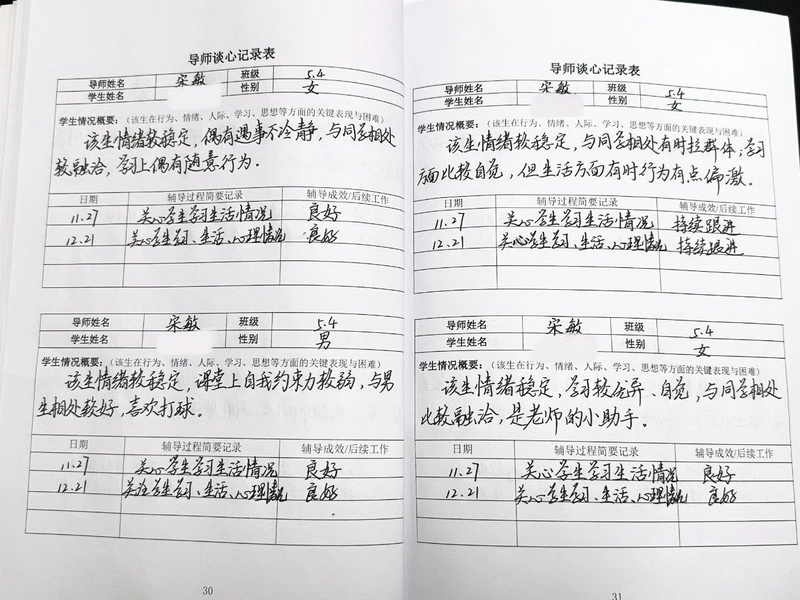 导师谈心记录表
导师姓名 宋敏 班级 5.4
学生姓名 性别 女
学生情况概要：（该生在行为、情绪、人际、学习、思想等方面的关键表现与困难）
该生情绪较稳定，偶有遇事不冷静，与同学相处
较融洽，学习上偶有随意行为．
日期 辅导过程简要记录 辅导成效/后续工作
11.27 关心学生学习生活情况 良好
12.21 关心学生学习、生活、心理情况 良好
导师姓名 宋敏 班级 5.4
学生姓名 性别 男
学生情况概要：（该生在行为、情绪、人际、学习、思想等方面的关键表现与困难）
该生情绪较稳定，课堂上自我约束力较弱，与男
生相处较好，喜欢打球．
日期 辅导过程简要记录 辅导成效/后续工作
11.27 关心学生学习生活情况 良好
12.21 关注学生学习、生活、心理情况 良好
30
导师谈心记录表
导师姓名 宋敏 班级 5.4
学生姓名 性别 女
学生情况概要：（该生在行为、情绪、人际、学习、思想等方面的关键表现与困难）
该生情绪较稳定，与同学相处有时拉群体，学习
方面比较自觉，但生活方面有时行为有点偏激．
日期 辅导过程简要记录 辅导成效/后续工作
11.27 关心学生学习生活情况 持续跟进
12.21 关心学生学习、生活、心理情况 持续跟进
导师姓名 宋敏 班级 5.4
学生姓名 性别 女
学生情况概要：（该生在行为、情绪、人际、学习、思想等方面的关键表现与困难）
该生情绪较稳定，学习较优异、自觉，与同学相处
比较融洽，是老师的小助手．
日期 辅导过程简要记录 辅导成效/后续工作
11.27 关心学生学习生活情况 良好
12.21 关心学生学习、生活、心理情况 良好
31